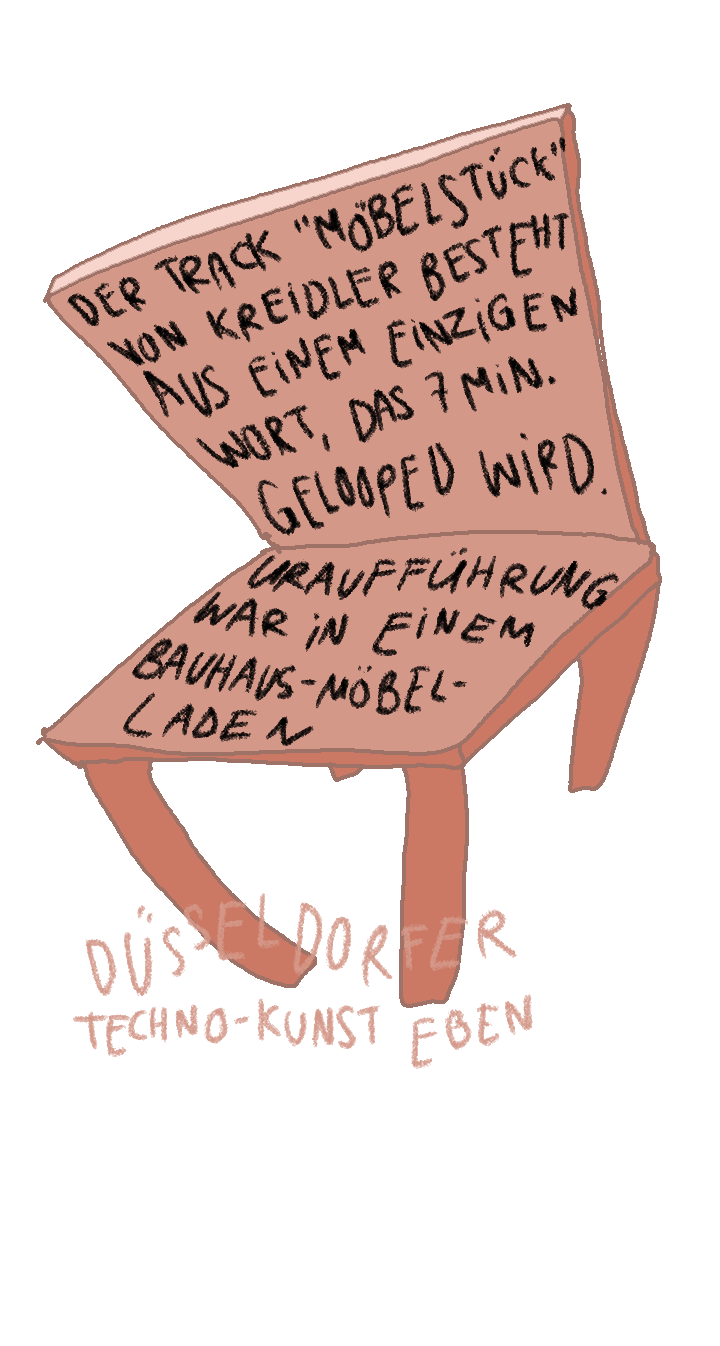 DER TRACK "MÖBELSTÜCK"
VON KREiDLER BESTEHT
AUS EiNEM EiNZiGEN
WORT, DAS 7 MiN.
GELOOPED WiRD.
URAUFFÜHRUNG
WAR iN EiNEM
BAUHAUS-MÖBEL-
LADEN
DÜSSELDORFER
TECHNO-KUNST EBEN